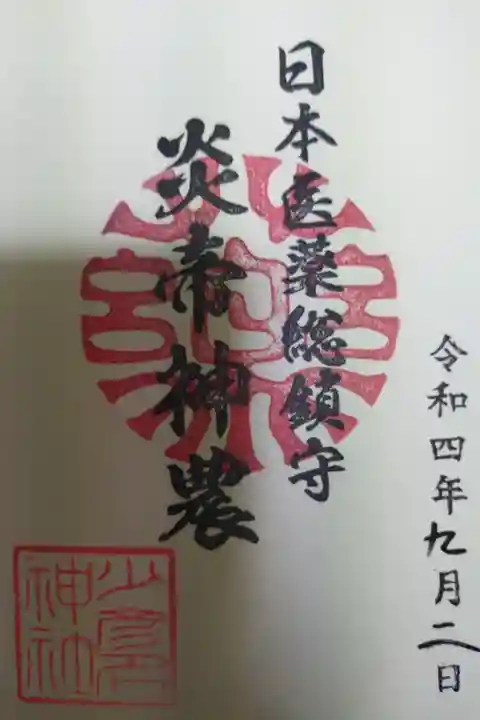 日本医薬総鎮守
炎帝神農
令和四年九月二日
少彦名
神社